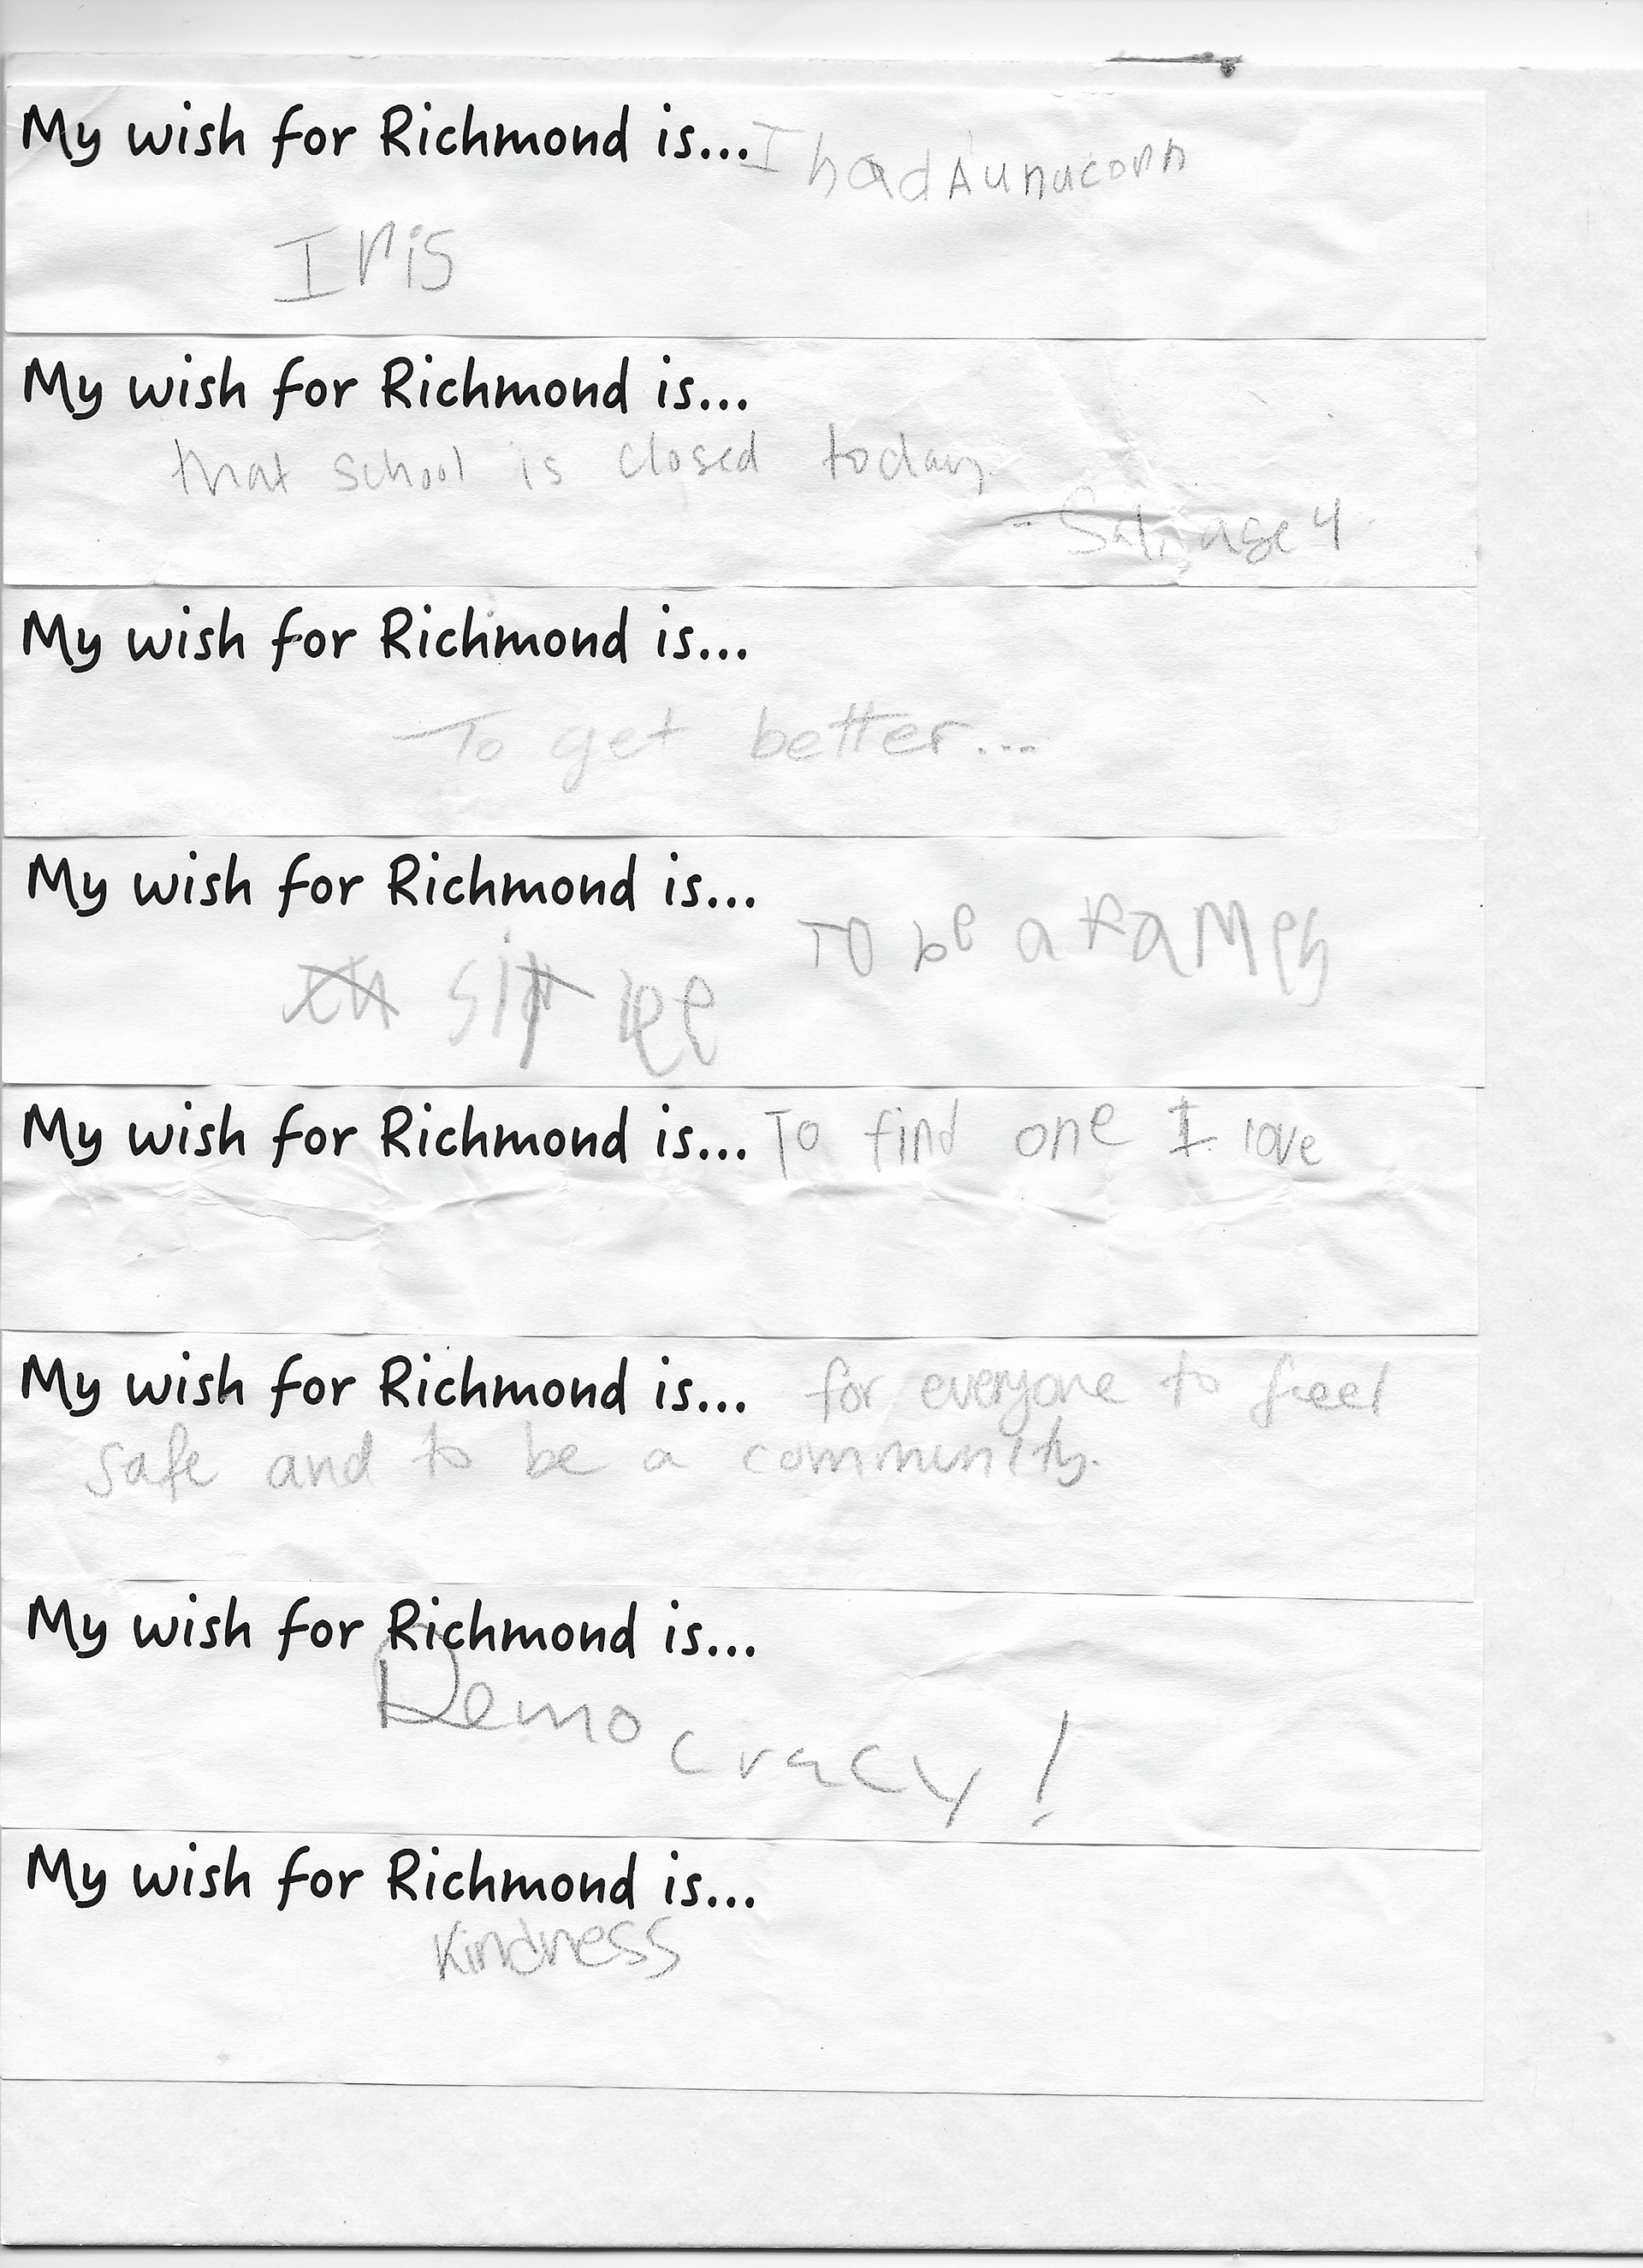 My wish for Richmond is... I had A unucorn
Iris
My wish for Richmond is...
that school is closed today
age 4
My wish for Richmond is...
To get better...
My wish for Richmond is...
To be a
My wish for Richmond is... To find one I love
My wish for Richmond is... for everyone to feel
safe and to be a community.
My wish for Richmond is...
Democracy!
My wish for Richmond is...
Kindness